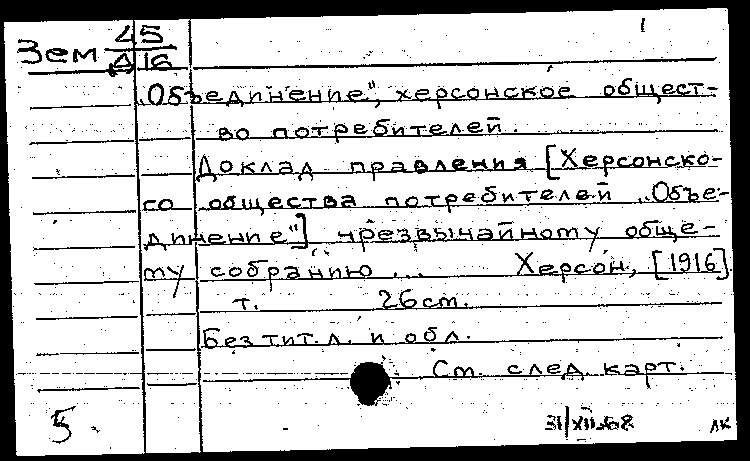 1
Зем 45
Д 16
„Объединение", херсонское общест-
во потребителей.
Доклад правления [Херсонско-
го общества потребителей „Объе-
динение"] чрезвычайному обще-
му собранию... Херсон, [1916]
т. 26 см.
Без тит. л. и обл.
См. след. карт.
5
31/XII.68 ЛК